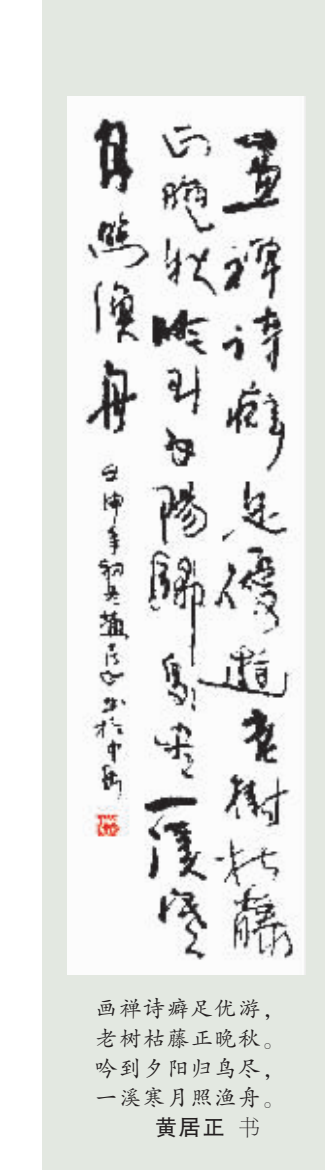 畫禪詩癖足優遊老樹枯藤
正晚秋吟到夕陽歸鳥盡一溪寒
月照漁舟
画禅诗癖足优游，
老树枯藤正晚秋。
吟到夕阳归鸟尽，
一溪寒月照渔舟。
黄居正 书